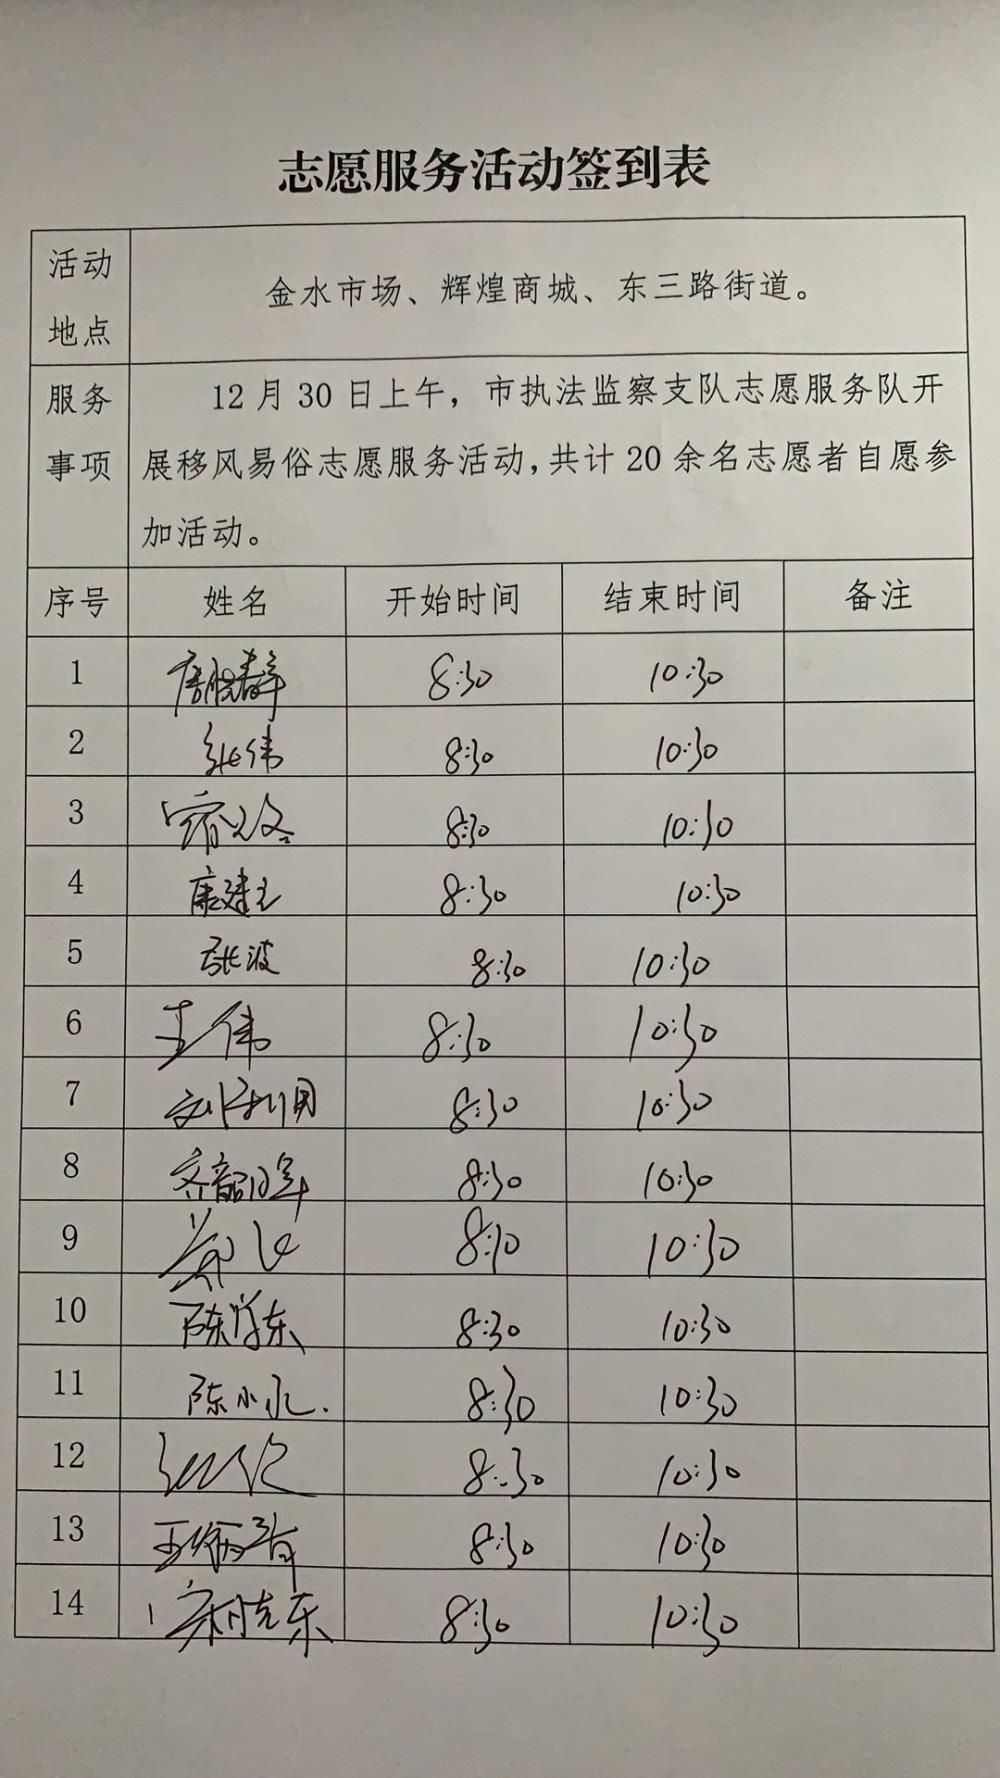 志愿服务活动签到表
活动
地点
金水市场、辉煌商城、东三路街道。
服务
事项
12月30日上午，市执法监察支队志愿服务队开
展移风易俗志愿服务活动，共计20余名志愿者自愿参
加活动。
序号 姓名 开始时间 结束时间 备注
1 8:30 10:30
2 张伟 8:30 10:30
3 8:30 10:30
4 8:30 10:30
5 张波 8:30 10:30
6 王伟 8:30 10:30
7 8:30 10:30
8 8:30 10:30
9 8:30 10:30
10 8:30 10:30
11 陈小永. 8:30 10:30
12 8:30 10:30
13 8:30 10:30
14 8:30 10:30